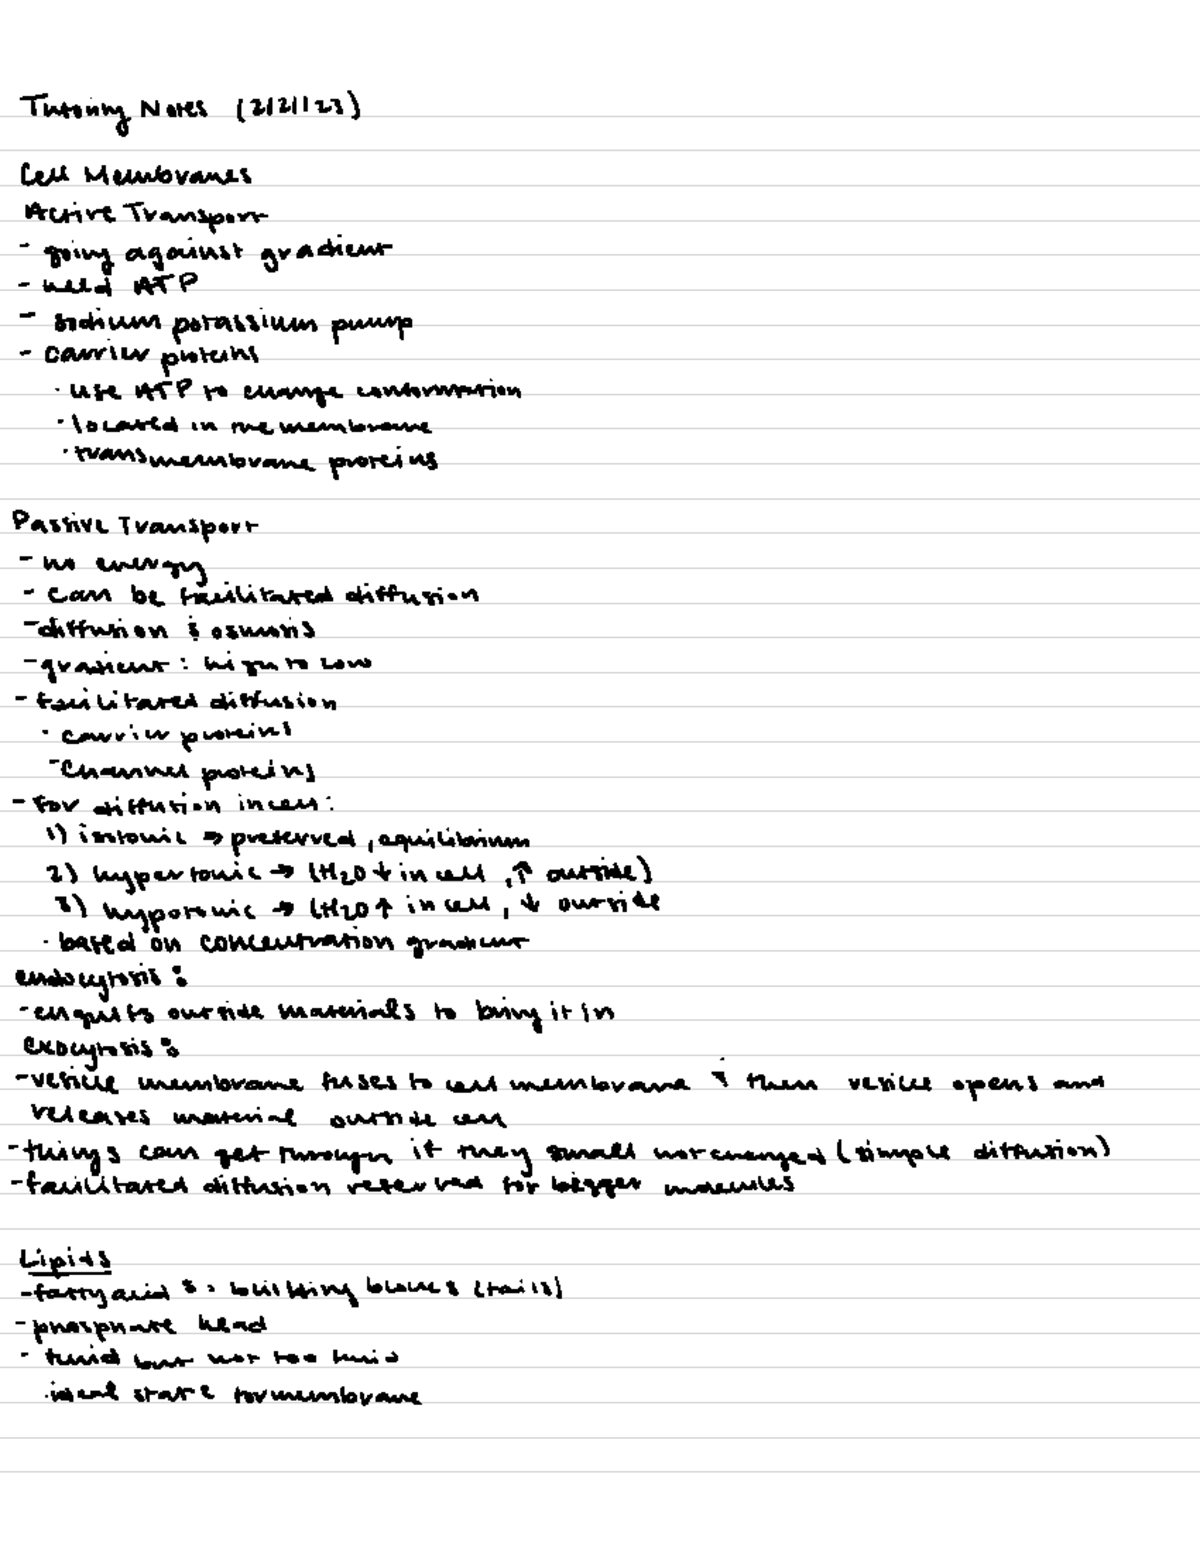 Tutoring Notes (2/21/23)
Cell Membranes
Active Transport
- going against gradient
- need ATP
- sodium potassium pump
- carrier proteins
· use ATP to change conformation
· located in the membrane
· transmembrane proteins
Passive Transport
- no energy
- can be facilitated diffusion
- diffusion & osmosis
- gradient: high to low
- facilitated diffusion
· carrier proteins
- channel proteins
- for diffusion in cell:
1) isotonic → preferred, equilibrium
2) hypertonic → (H2O ↓ in cell, ↑ outside)
3) hypotonic → (H2O ↑ in cell, ↓ outside
· based on concentration gradient
endocytosis:
- engulfs outside materials to bring it in
exocytosis:
- vesicle membrane fuses to cell membrane & then vesicle opens and
releases material outside cell
- things can get through if they small not changed (simple diffusion)
- facilitated diffusion reserved for bigger molecules
Lipids
- fatty acids: building blocks (tails)
- phosphate head
- fluid but not too fluid
· ideal state for membrane